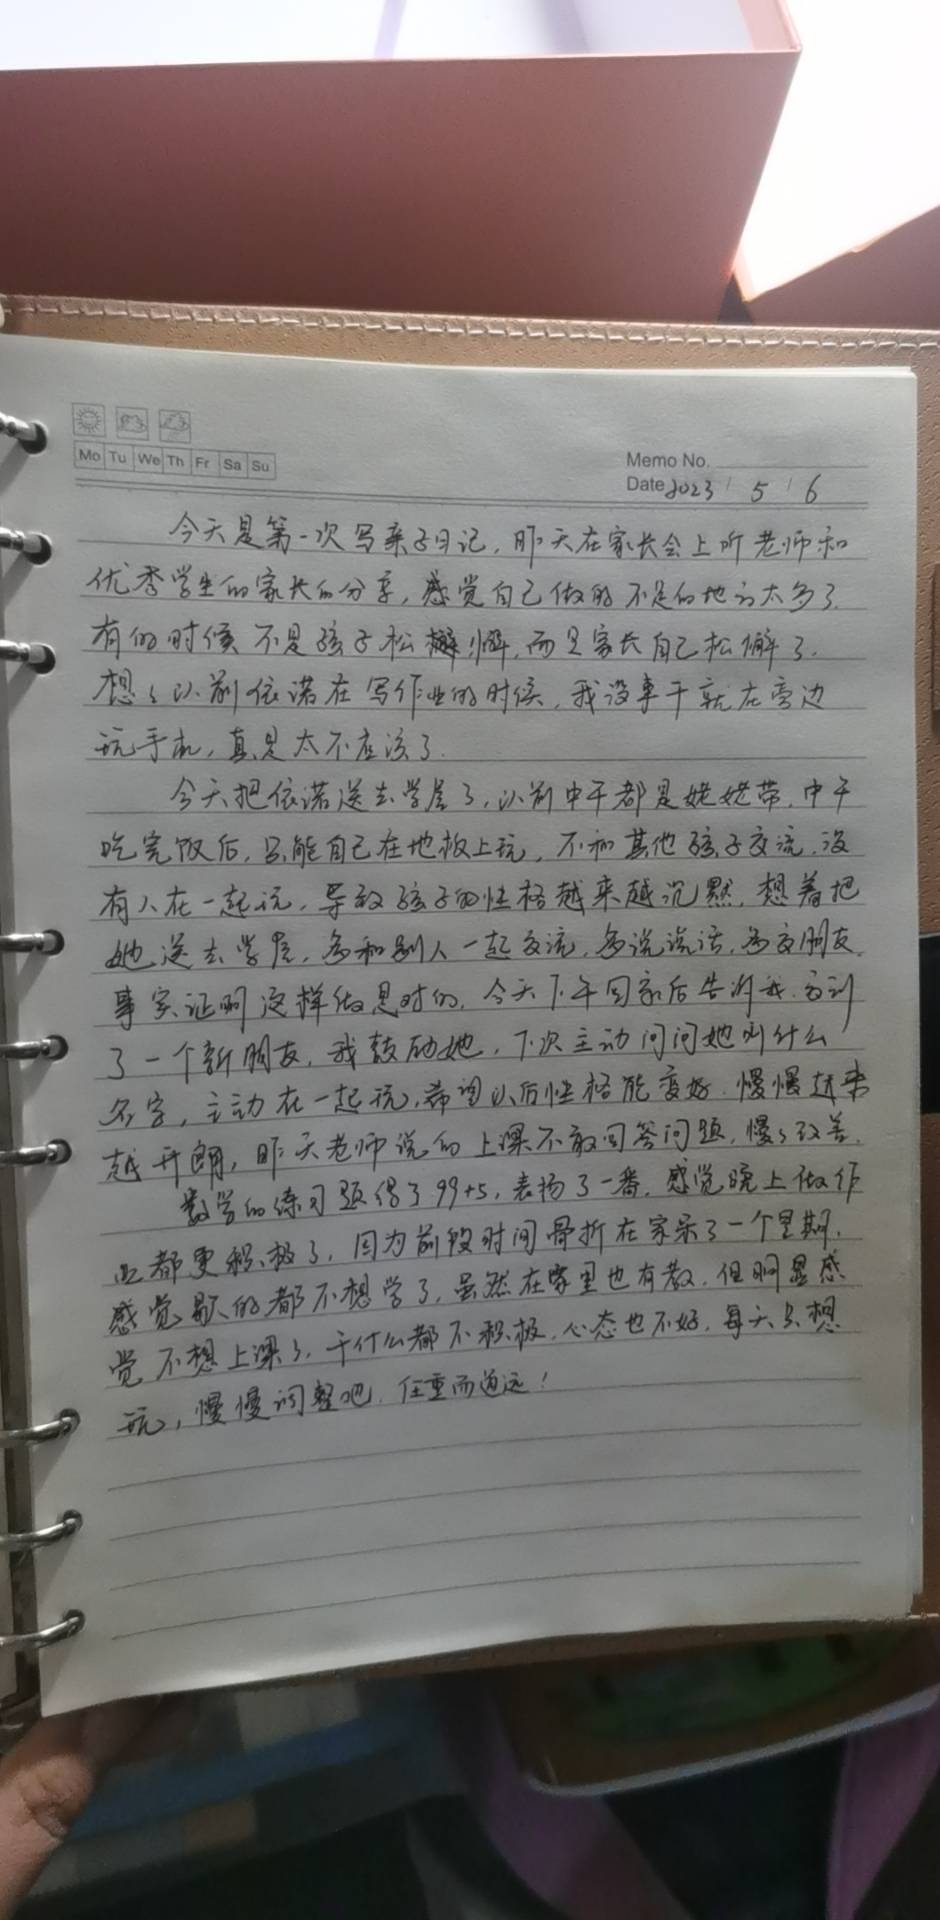 Mo Tu We Th Fr Sa Su
Memo No.
Date 2023 / 5 / 6
今天是第一次写亲子日记，昨天在家长会上听老师和
优秀学生的家长的分享，感觉自己做的不足的地方太多了.
有的时候不是孩子松懈，而是家长自己松懈了.
想想以前依诺在写作业的时候，我没事干就在旁边
玩手机，真是太不应该了.
今天把依诺送去学屋了，以前中午都是姥姥带，中午
吃完饭后，只能自己在地板上玩，不和其他孩子交流，没
有人在一起玩，导致孩子的性格越来越沉默，想着把
她送去学屋，多和别人一起交流，多说说话，多交朋友，
事实证明这样做是对的，今天下午回家后告诉我，交到
了一个新朋友，我鼓励她，下次主动问问她叫什么
名字，主动在一起玩，希望以后性格能变好，慢慢越来
越开朗，昨天老师说的上课不敢回答问题，慢慢改善.
数学的练习题得了99+5，表扬了一番，感觉晚上做作
业都更积极了，因为前段时间骨折在家呆了一个星期，
感觉歇的都不想学了，虽然在家里也有教，但明显感
觉不想上课了，干什么都不积极，心态也不好，每天只想
玩，慢慢调整吧，任重而道远！